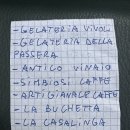 - GELATERIA VIVOLI
- GELATERIA DELLA
PASSERA
- ANTICO VINAIO
- SIMBIOSI CAFFE
- ARTIGIANALE CAFFE
- LA BUCHETTA
- LA CASALINGA